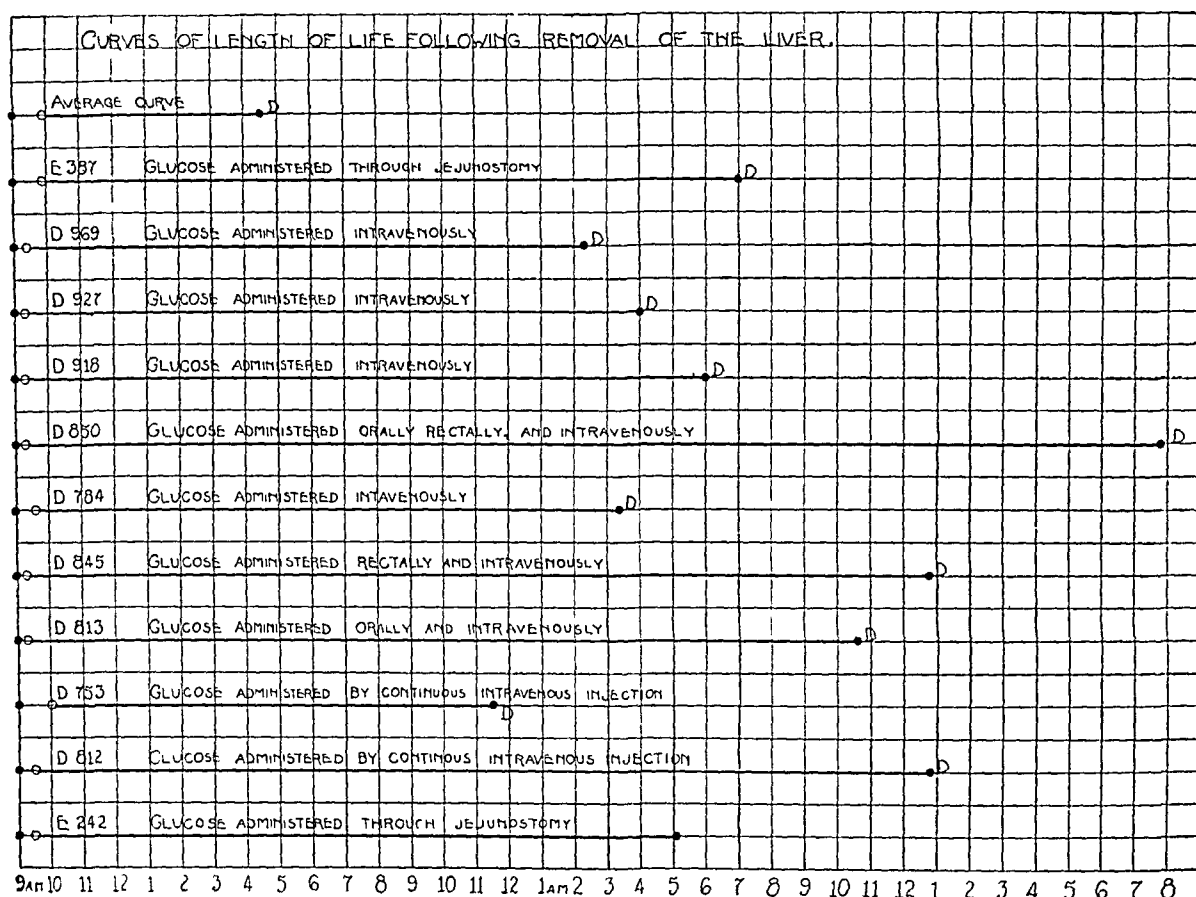 CURVES OF LENGTH OF LIFE FOLLOWING REMOVAL OF THE LIVER.
AVERAGE CURVE D
E 387 GLUCOSE ADMINISTERED THROUGH JEJUNOSTOMY D
D 969 GLUCOSE ADMINISTERED INTRAVENOUSLY D
D 927 GLUCOSE ADMINISTERED INTRAVENOUSLY D
D 918 GLUCOSE ADMINISTERED INTRAVENOUSLY D
D 850 GLUCOSE ADMINISTERED ORALLY RECTALLY, AND INTRAVENOUSLY D
D 784 GLUCOSE ADMINISTERED INTAVENOUSLY D
D 845 GLUCOSE ADMINISTERED RECTALLY AND INTRAVENOUSLY D
D 813 GLUCOSE ADMINISTERED ORALLY AND INTRAVENOUSLY D
D 753 GLUCOSE ADMINISTERED BY CONTINUOUS INTRAVENOUS INJECTION
D
D 812 CLUCOSE ADMINISTERED BY CONTINOUS INTRAVENOUS INJECTION D
E 242 GLUCOSE ADMINISTERED THROUGH JEJUNOSTOMY
9AM 10 11 12 1 2 3 4 5 6 7 8 9 10 11 12 1AM 2 3 4 5 6 7 8 9 10 11 12 1 2 3 4 5 6 7 8